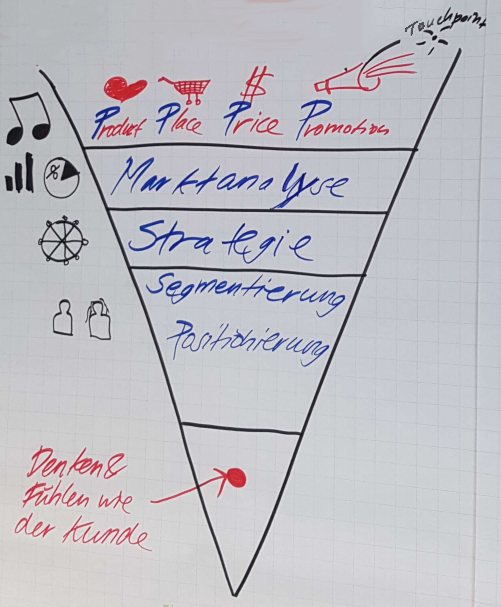 Touchpoint
$
Product Place Price Promotion
%
Marktanalyse
Strategie
Segmentierung
Positionierung
Denken &
Fühlen wie
der Kunde